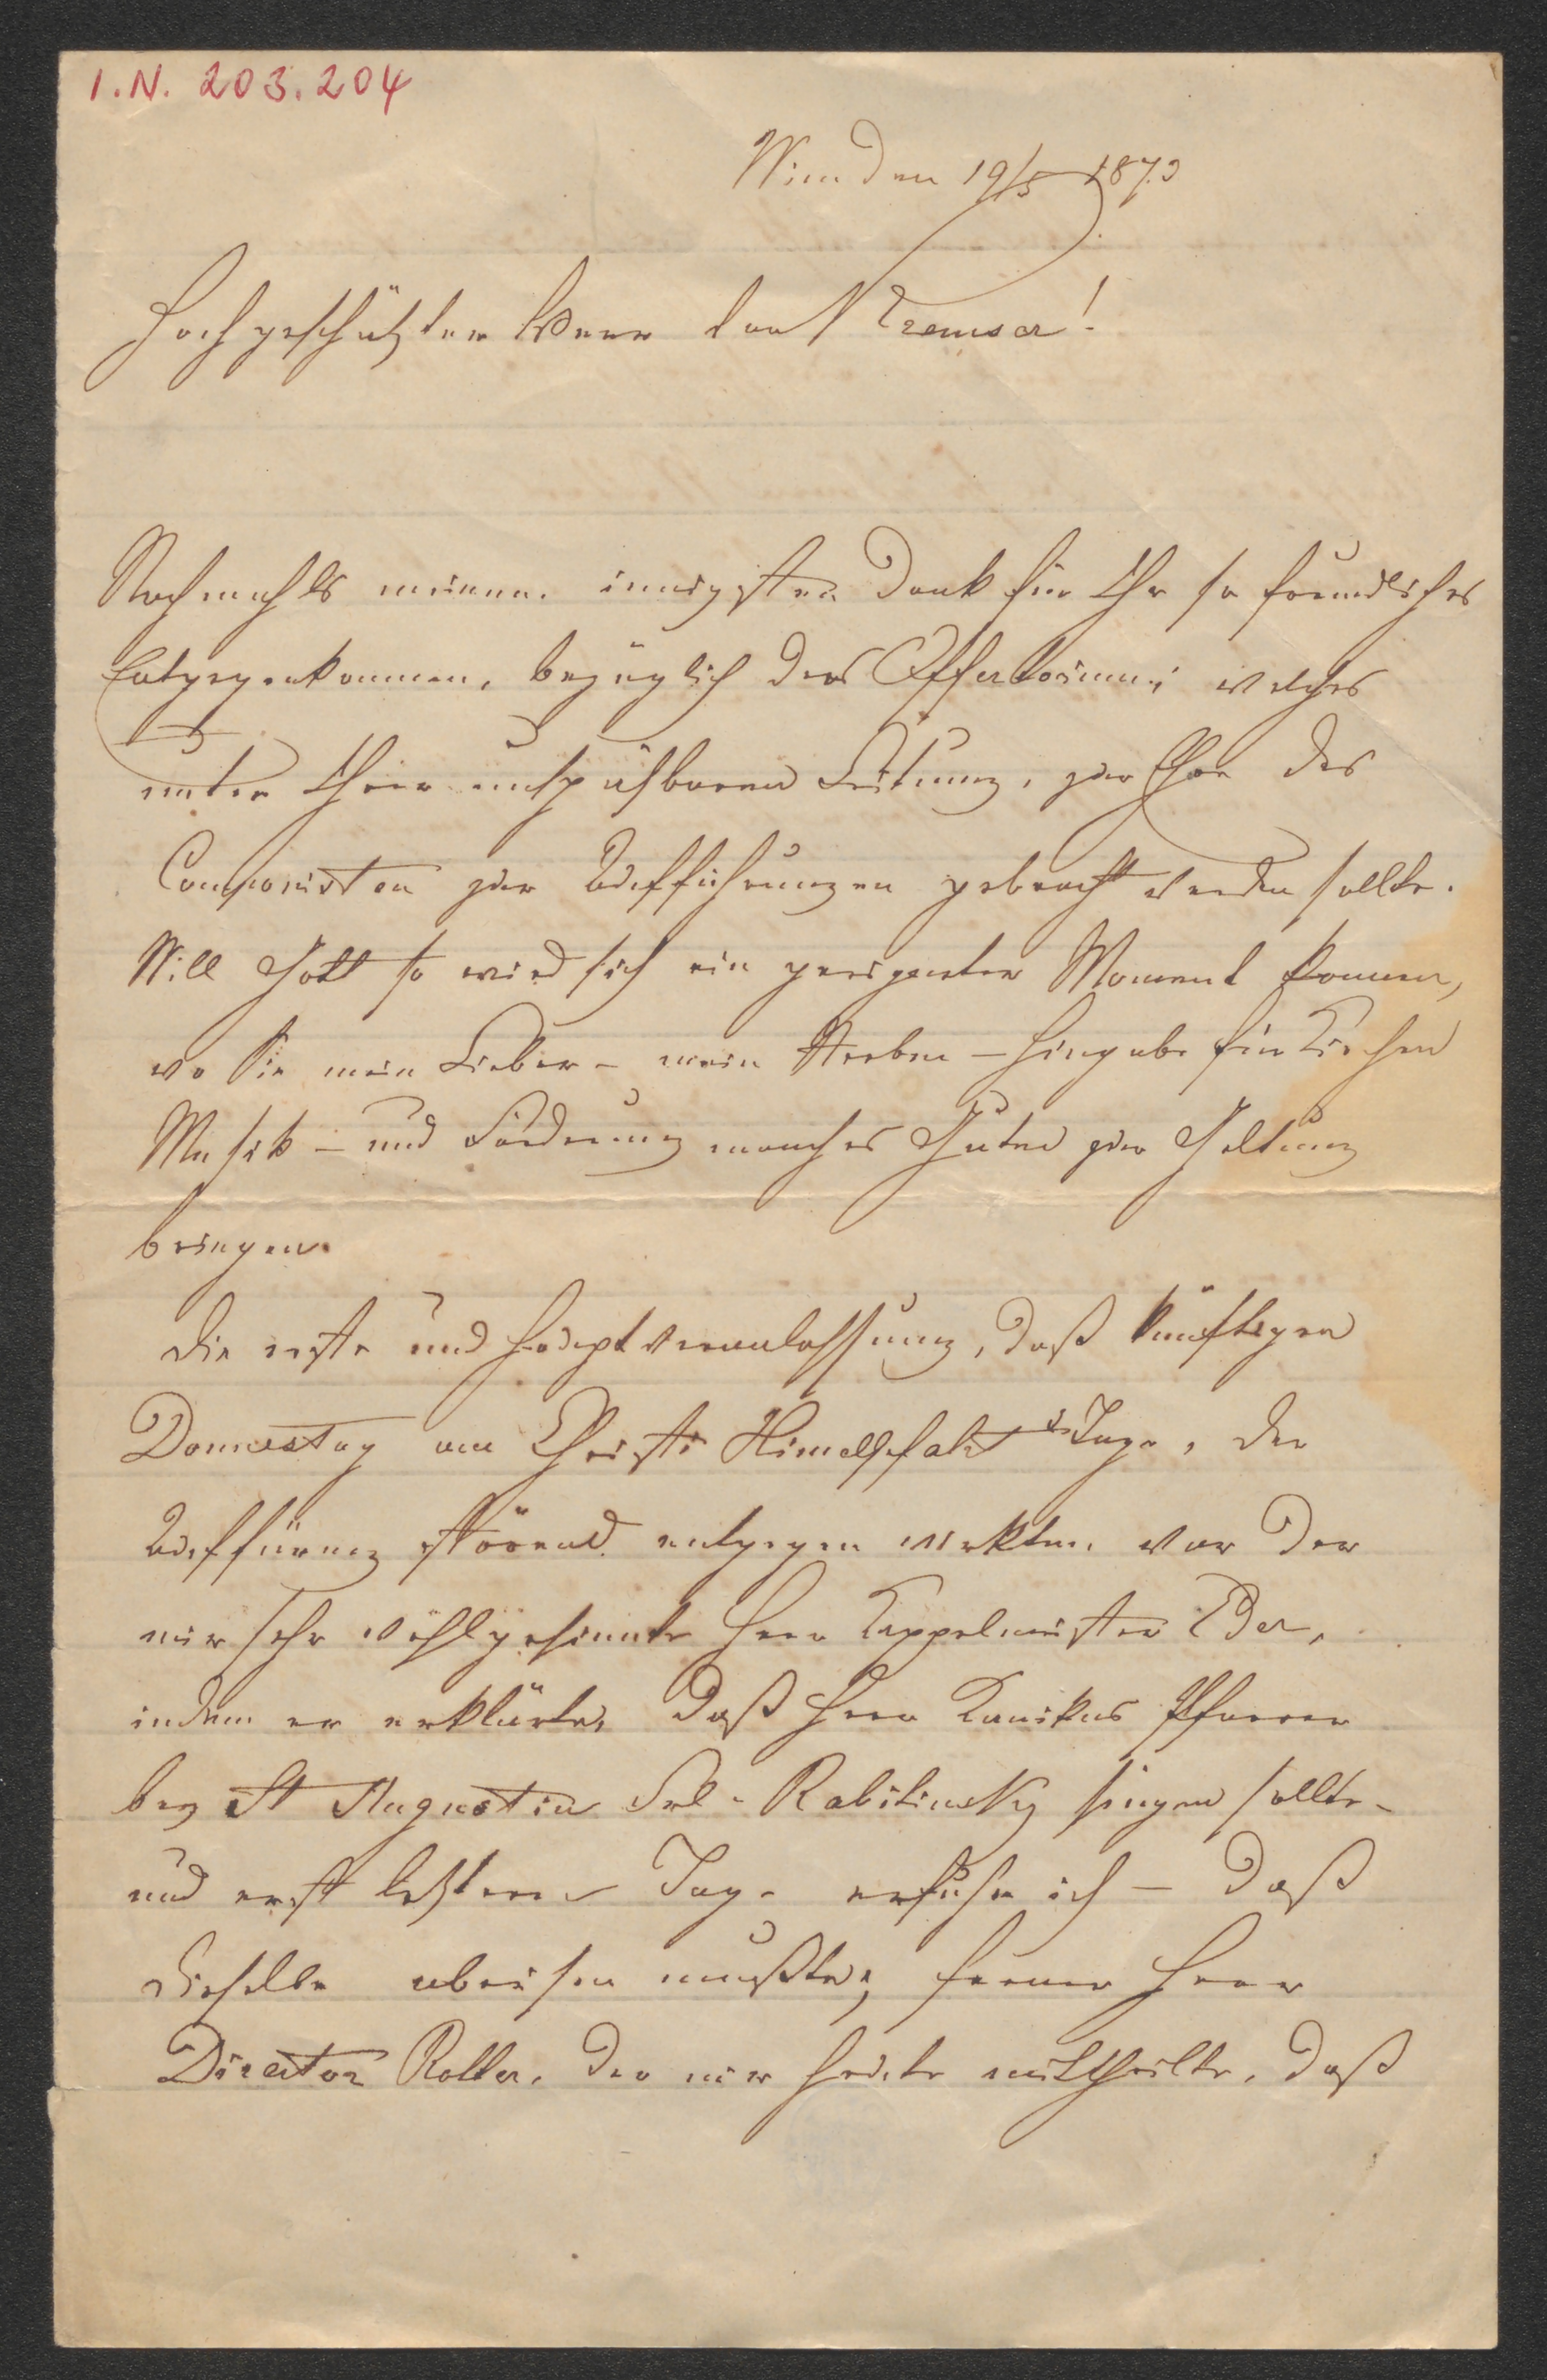 I.N. 203.204
Wien den 19/5 1873
Hochgeschätzter Herr von Kremser!
Nochmahls meinen innigsten Dank für Ihr so freundliches
Entgegenkommen, bezüglich des Offertoriums welches
unter Ihrer Leitung, zur Ehre des
Componisten zur Aufführungen gebracht werden sollte.
Will Gott so wird sich ein geeigneter Moment kommen,
wo Sie mein Lieber – mein Streben – Hingabe für Kirchen
Musik – und Förderung manches Guten zur Geltung
bringen.
Die erste und Hauptveranlassung, daß künftigen
Donnerstag am Christi Himelfahrts Tage, der
Auffürung störend entgegen wirkten war der
mir sehr wohlgesinnte Herr Kappelmeister Eder,
indem er erklärte, daß Herr Kanikus Pfarrer
bey St Augustin Frl. Rabitinsky singen sollte –
und erst letztern Tage erfuhr ich – daß
dieselbe abreisen mußte; ferner Herr
Director Rotter, der mir heute mittheilte, daß